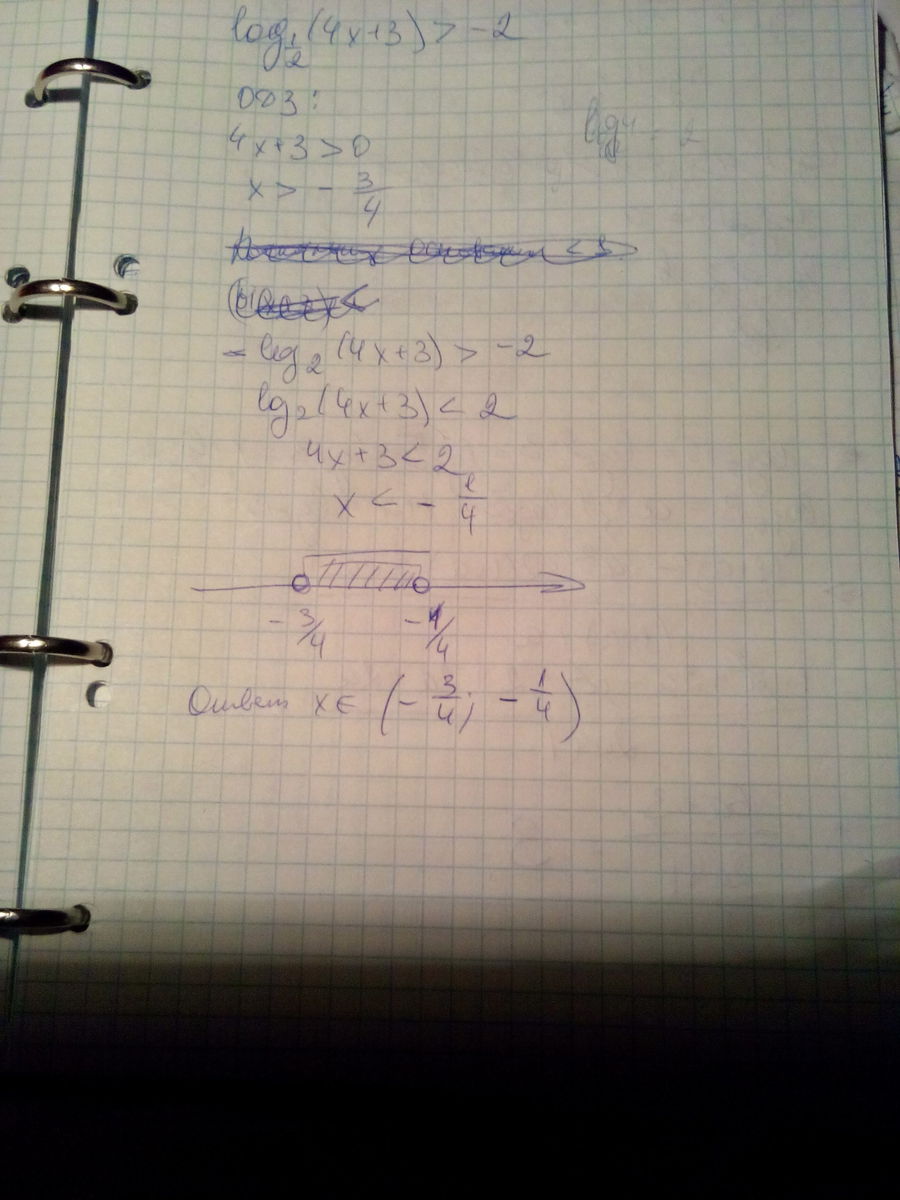 log 1/2 (4x+3) > -2
ОДЗ:
4x+3 > 0
x > - 3/4
- log₂ (4x+3) > -2
log₂ (4x+3) < 2
4x+3 < 2
x < - 1/4
-3/4 -1/4
Ответ x ∈ (- 3/4; - 1/4)